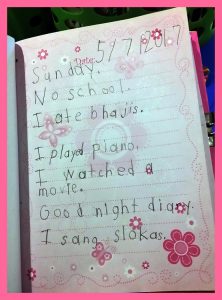 Date: 5/7/2017
Sunday.
No school.
I ate bhajis.
I played piano.
I watched a
movie.
Good night diary.
I sang slokas.